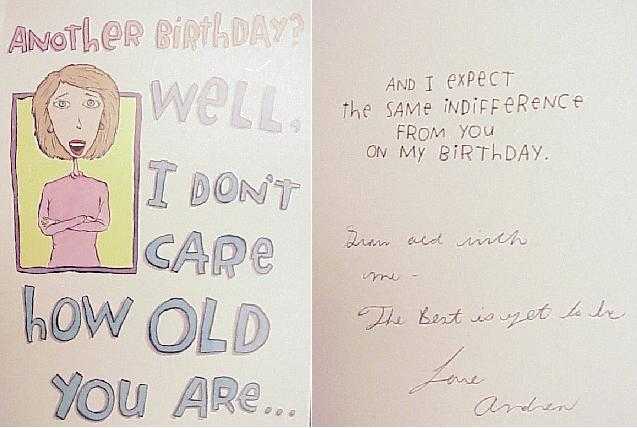 ANOTHER BIRTHDAY?
WELL,
I DON'T
CARE
HOW OLD
YOU ARE...
AND I EXPECT
the SAME INDIFFERENCE
FROM YOU
ON MY BIRTHDAY.
Grow old with
me -
The Best is yet to be
Love